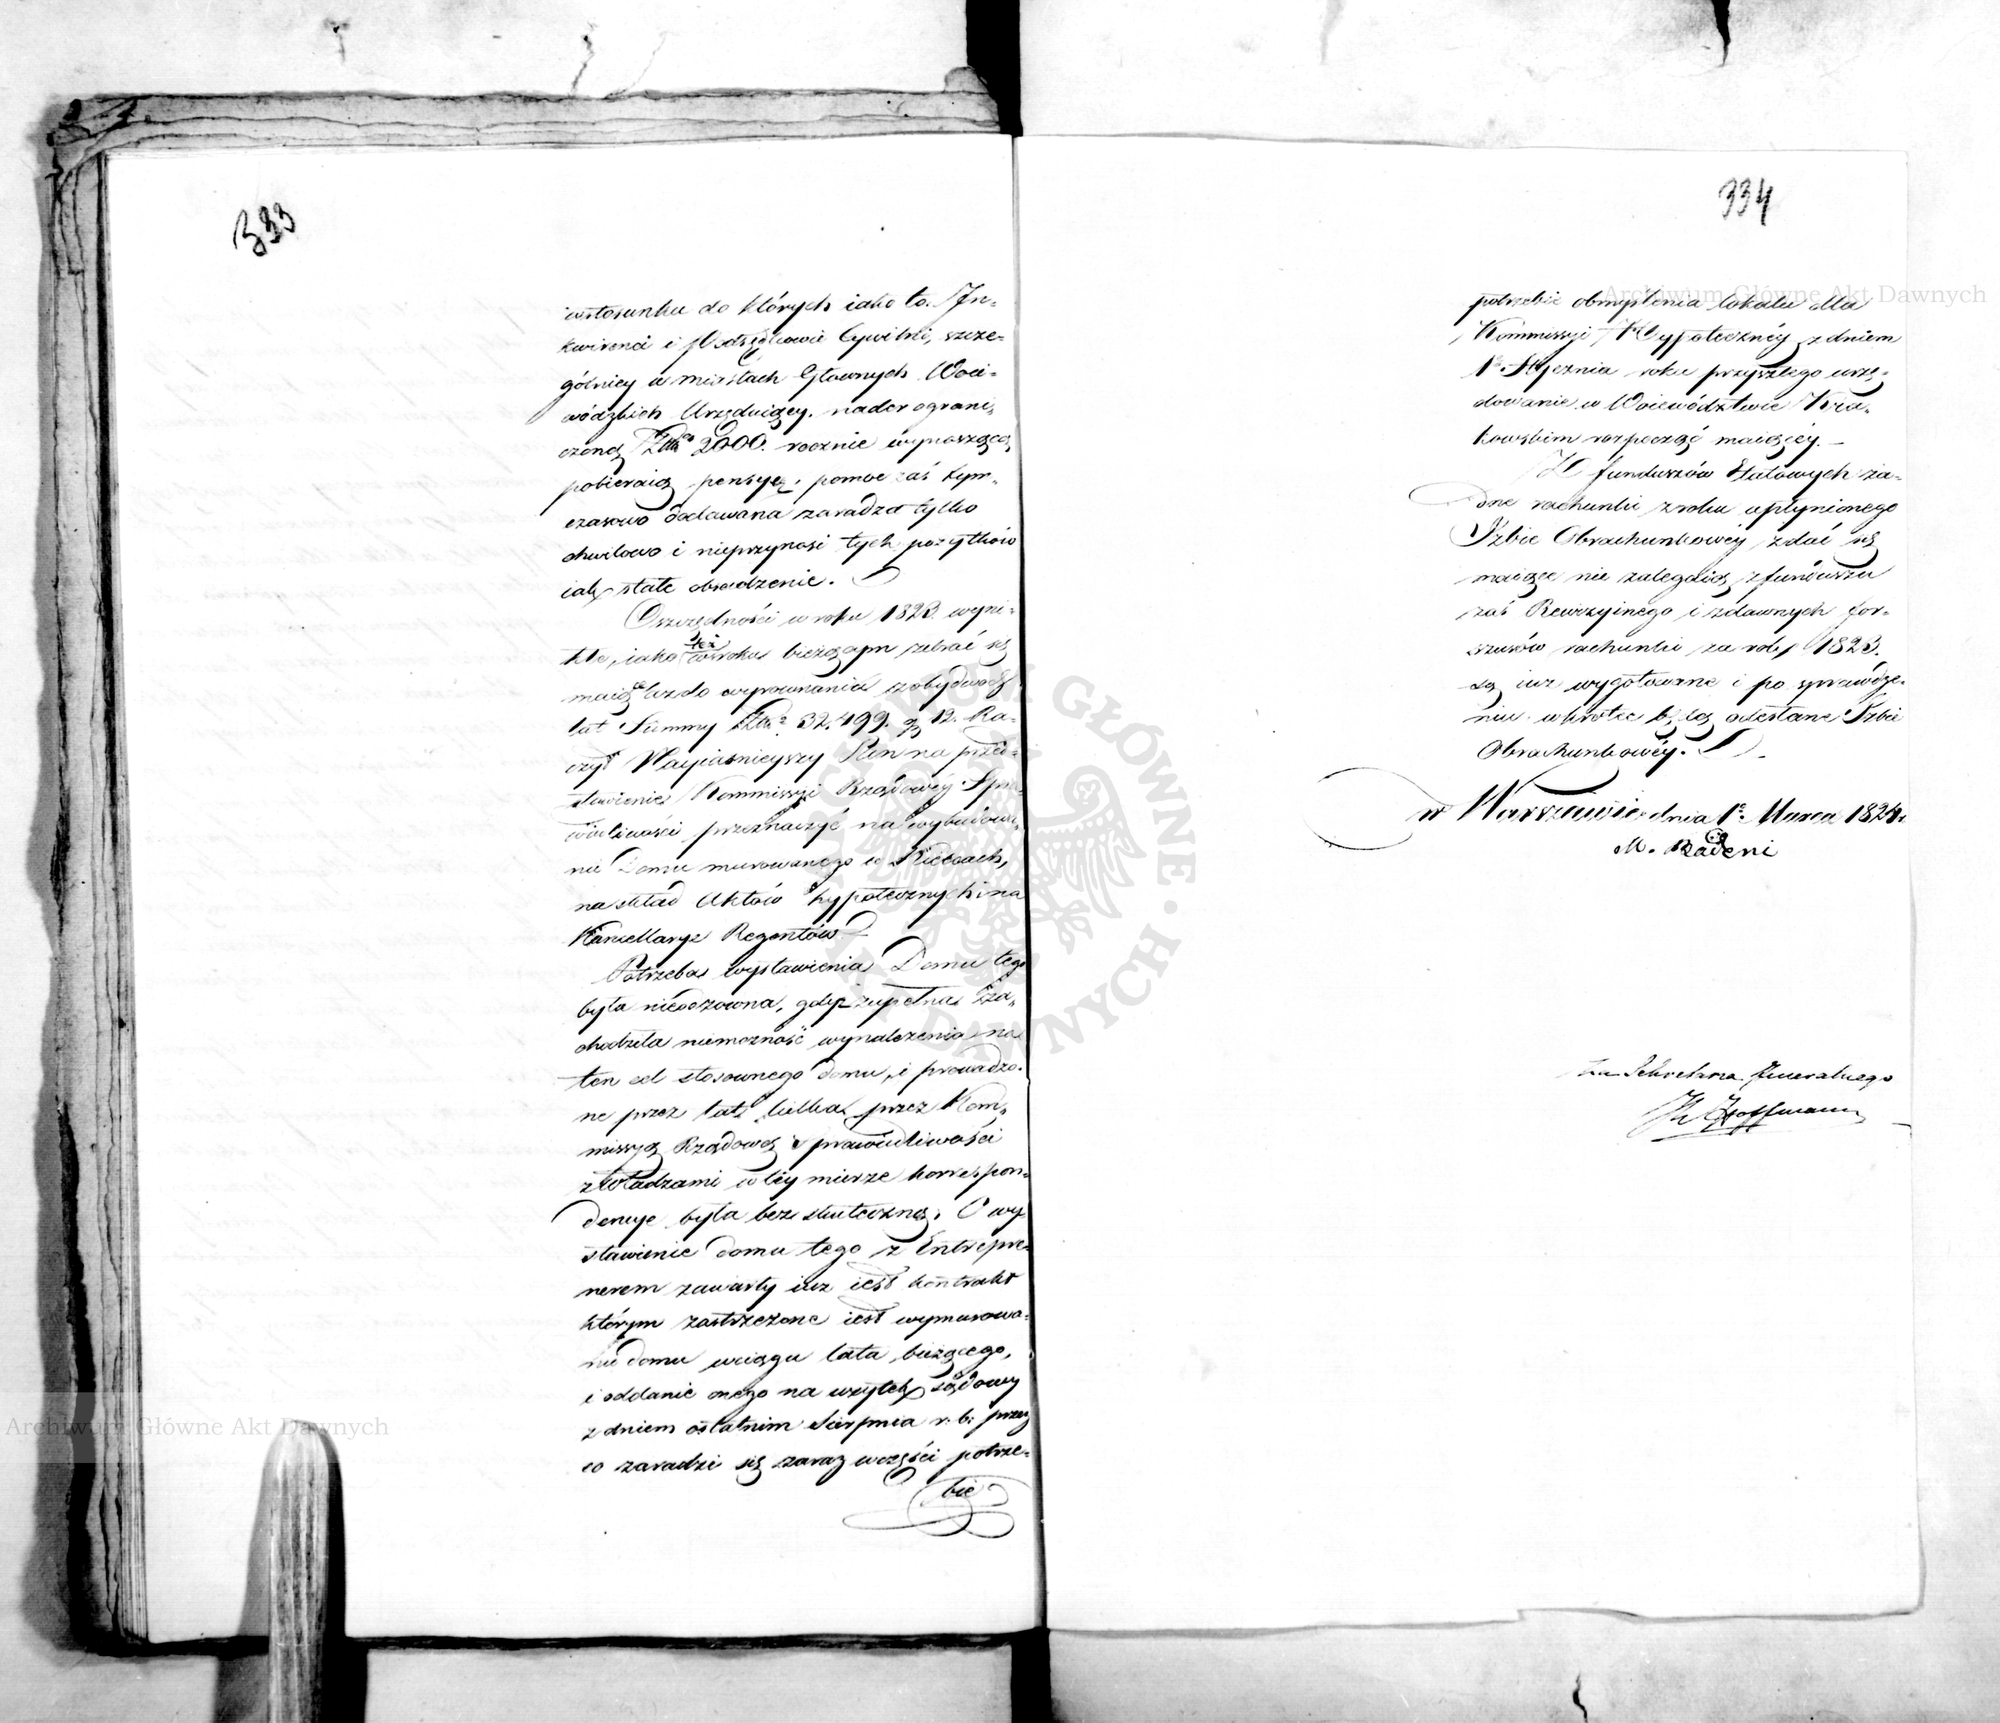 333
wstosunku do których iako to. In-
kwirenci i Podsędkowie Cywilni, szcze-
gólniey w miastach Głownych Woie-
wódzkich Urzęduiący. nader ograni-
czoną 2000. rocznie wynoszącą
pobieraią pensyę, pomoc zaś tym-
czasowo dodawana zaradza tylko
chwilowo i nieprzynosi tych pożytków
iak stałe obsadzenie.
Oszczędności w roku 1823. wyni-
kłe, iako też wroku bieżącym zebrać się
maiące do wyrównania zobydwóch
lat Summy 32,499. g 12. Ra-
czył Nayiaśnieyszy Pan na przed-
stawienie Kommissyi Rządowéy Spra-
wiedliwości przeznaczyć na wybudowa-
nie Domu murowanego w Kielcach,
na skład Aktów hypotecznych i na
Kancellarye Regentów
Potrzeba wystawienia Domu tego
była nieodzowna, gdyż zupełna za-
chodziła niemożność wynalezienia na
ten cel stosownego domu, i prowadzo-
ne przez lat kilka przez Kom-
missyą Rządową Sprawiedliwości
z Władzami w téy mierze korrespon-
dencye była bezskuteczną. O wy
stawienie domu tego z Entrepre-
nerem zawarty iuż iest kontrakt
którym zastrzeżone iest wymurowa-
nie domu wciągu lata bieżącego,
i oddanie onego na użytek sądowy
z dniem ostatnim Sierpnia r. b. przez
co zaradzi się zaraz wczęści potrze-
bie
334
potrzebie obmyślenia lokalu dla
Kommissyi Hypotecznéy z dniem
1o Stycznia roku przyszłego urzę-
dowanie w Woiewództwie Kra-
kowskim rozpocząć maiącéy. —
Z funduszów Etatowych ża-
dne rachunki z roku upłynionego
Izbie Obrachunkowéy zdać się
maiące nie zalegaią z funduszu
zaś Rewizyinego i zdawnych for-
szusów rachunki za rok 1823.
są iuż wygotowane i po sprawdze-
niu wkrótce będą odesłane Izbie
Obrachunkowéy.
w Warszawie dnia 1o Marca 1824.
M. Badeni
za Sekretarza Jeneralnego
Hoffmann
Archiwum Główne Akt Dawnych
Archiwum Główne Akt Dawnych